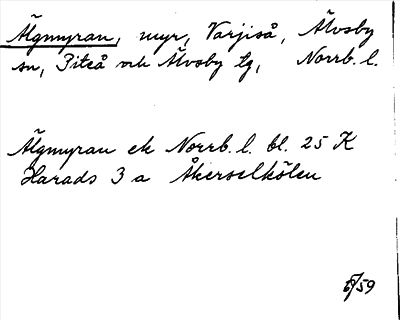 Älgmyran, myr, Varjiså, Älvsby
sn, Piteå och Älvsby tg, Norrb. l.
Älgmyran ek Norrb. l. bl. 25 K
Harads 3 a Åkerselkölen
5/59